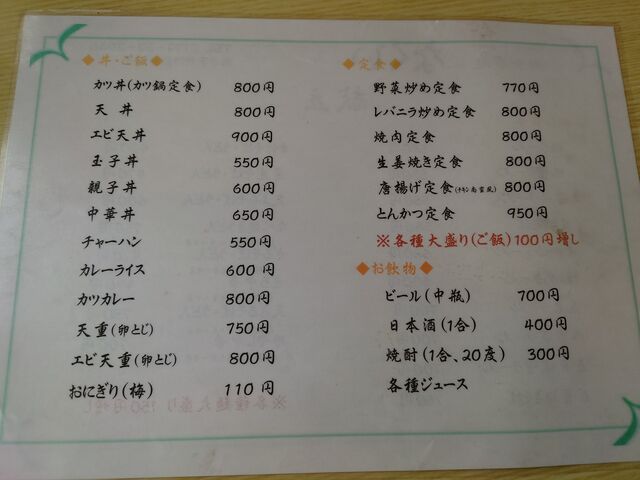 ◆丼・ご飯◆
カツ丼(カツ鍋定食) 800円
天丼 800円
エビ天丼 900円
玉子丼 550円
親子丼 600円
中華丼 650円
チャーハン 550円
カレーライス 600円
カツカレー 800円
天重(卵とじ) 750円
エビ天重(卵とじ) 800円
おにぎり(梅) 110円
◆定食◆
野菜炒め定食 770円
レバニラ炒め定食 800円
焼肉定食 800円
生姜焼き定食 800円
唐揚げ定食(チキン南蛮風) 800円
とんかつ定食 950円
※各種大盛り(ご飯)100円増し
◆お飲物◆
ビール(中瓶) 700円
日本酒(1合) 400円
焼酎(1合、20度) 300円
各種ジュース